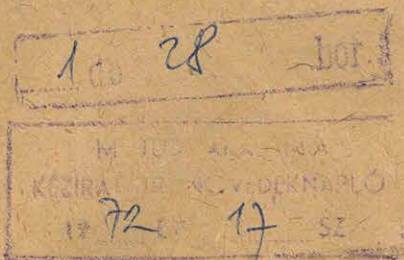 1 db 28
M. TUD. AKADÉMIA
KÉZIRATTÁR NÖVEDÉKNAPLÓ
19 72 ÉV 17 SZ.